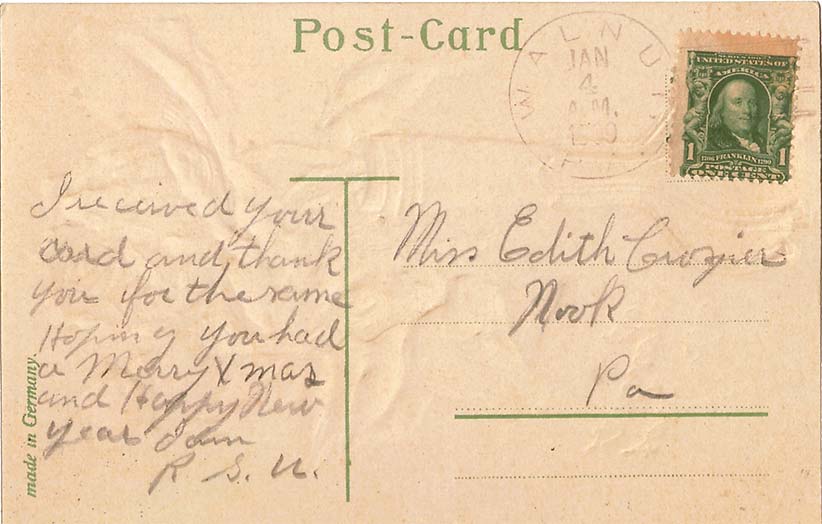 Post-Card
WALNUT
JAN
4
A.M.
SERIES 1902
UNITED STATES OF
AMERICA
1 1706 FRANKLIN 1790 1
POSTAGE
ONE CENT
I received your
card and thank
you for the same
Hoping you had
a Merry Xmas
and Happy New
year I am
R. S. U.
Miss Edith Crozier
Nook
Pa
made in Germany.